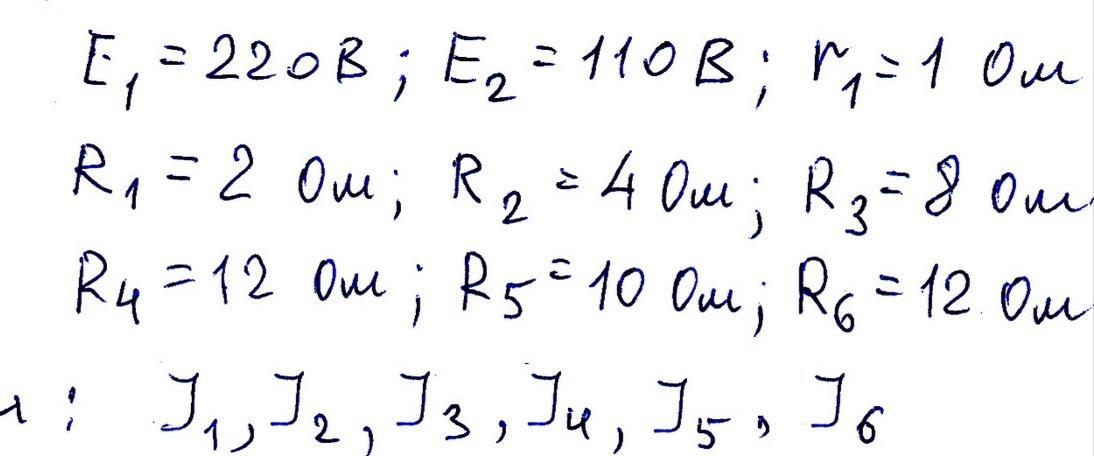 E₁ = 220 В ; E₂ = 110 В ; r₁ = 1 Ом
R₁ = 2 Ом; R₂ = 4 Ом; R₃ = 8 Ом
R₄ = 12 Ом ; R₅ = 10 Ом; R₆ = 12 Ом
: J₁, J₂, J₃, J₄, J₅, J₆